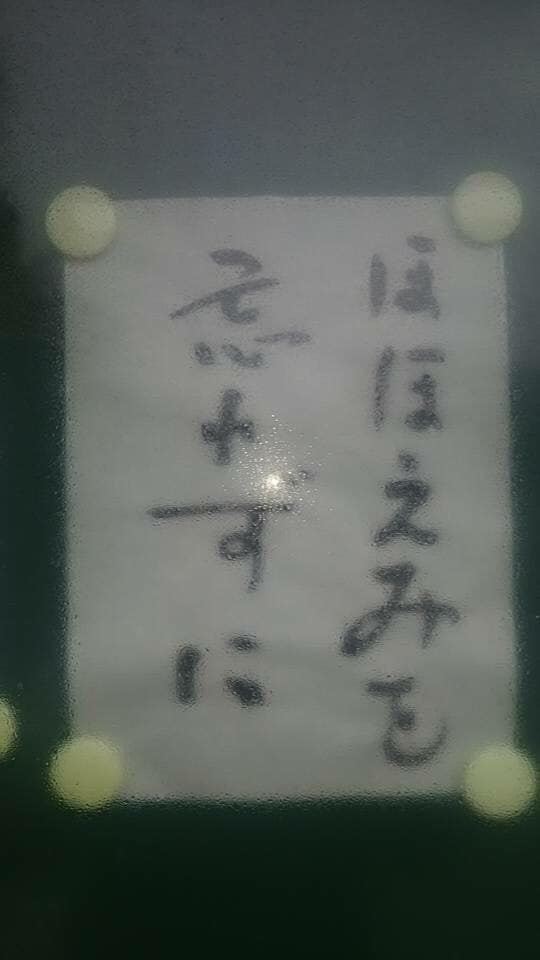 ほほえみを
忘れずに